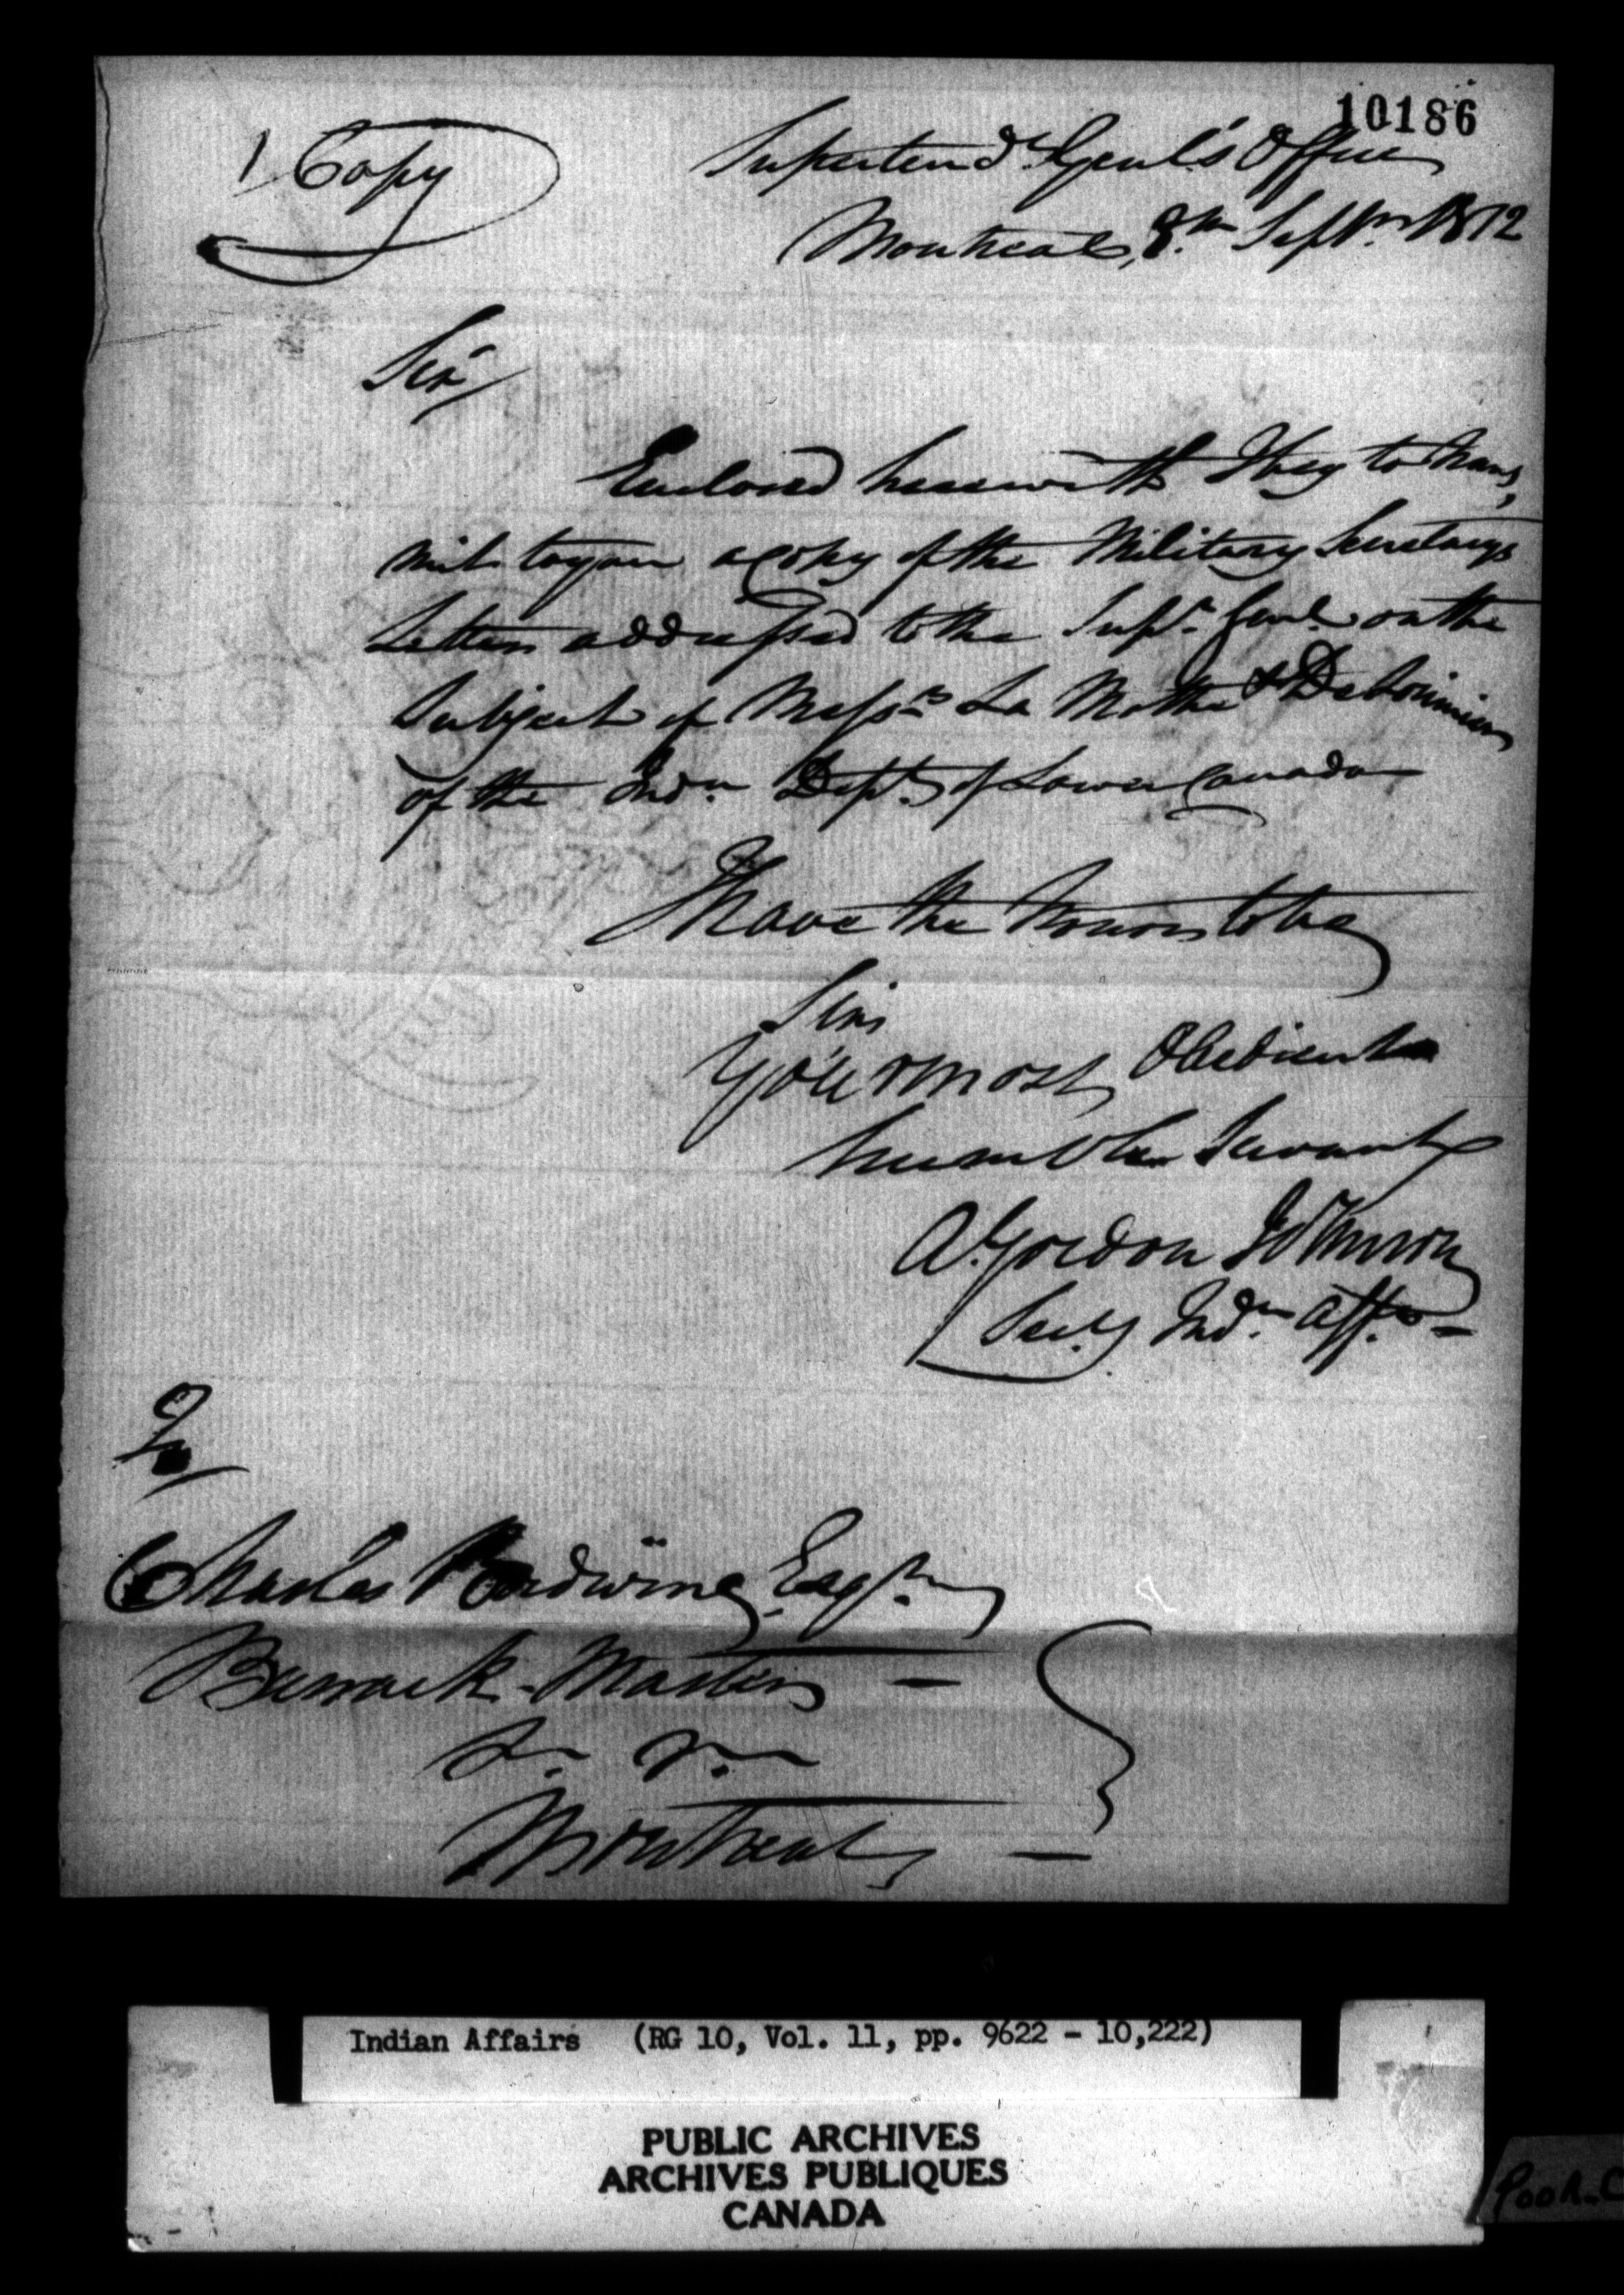 10186
Copy
Supertend.t Genl's Office
Montreal, 8.th Septr. 1812
Sir
Enclosed herewith I beg to trans,
mit to you a copy of the Military Secretarys
Letter addressed to the Supt. Genl. on the
Subject of Messrs. La Mothe & De Lorimier
of the Indn. Dept. of Lower Canada
I have the honor to be
Sir
Your most Obedient
humble Servant
A. Gordon Johnson
Secy. Indn. Affrs. –
To
Charles Esqr.
Barrack-Master –
Montreal –
Indian Affairs (RG 10, Vol. 11, pp. 9622 - 10,222)
PUBLIC ARCHIVES
ARCHIVES PUBLIQUES
CANADA